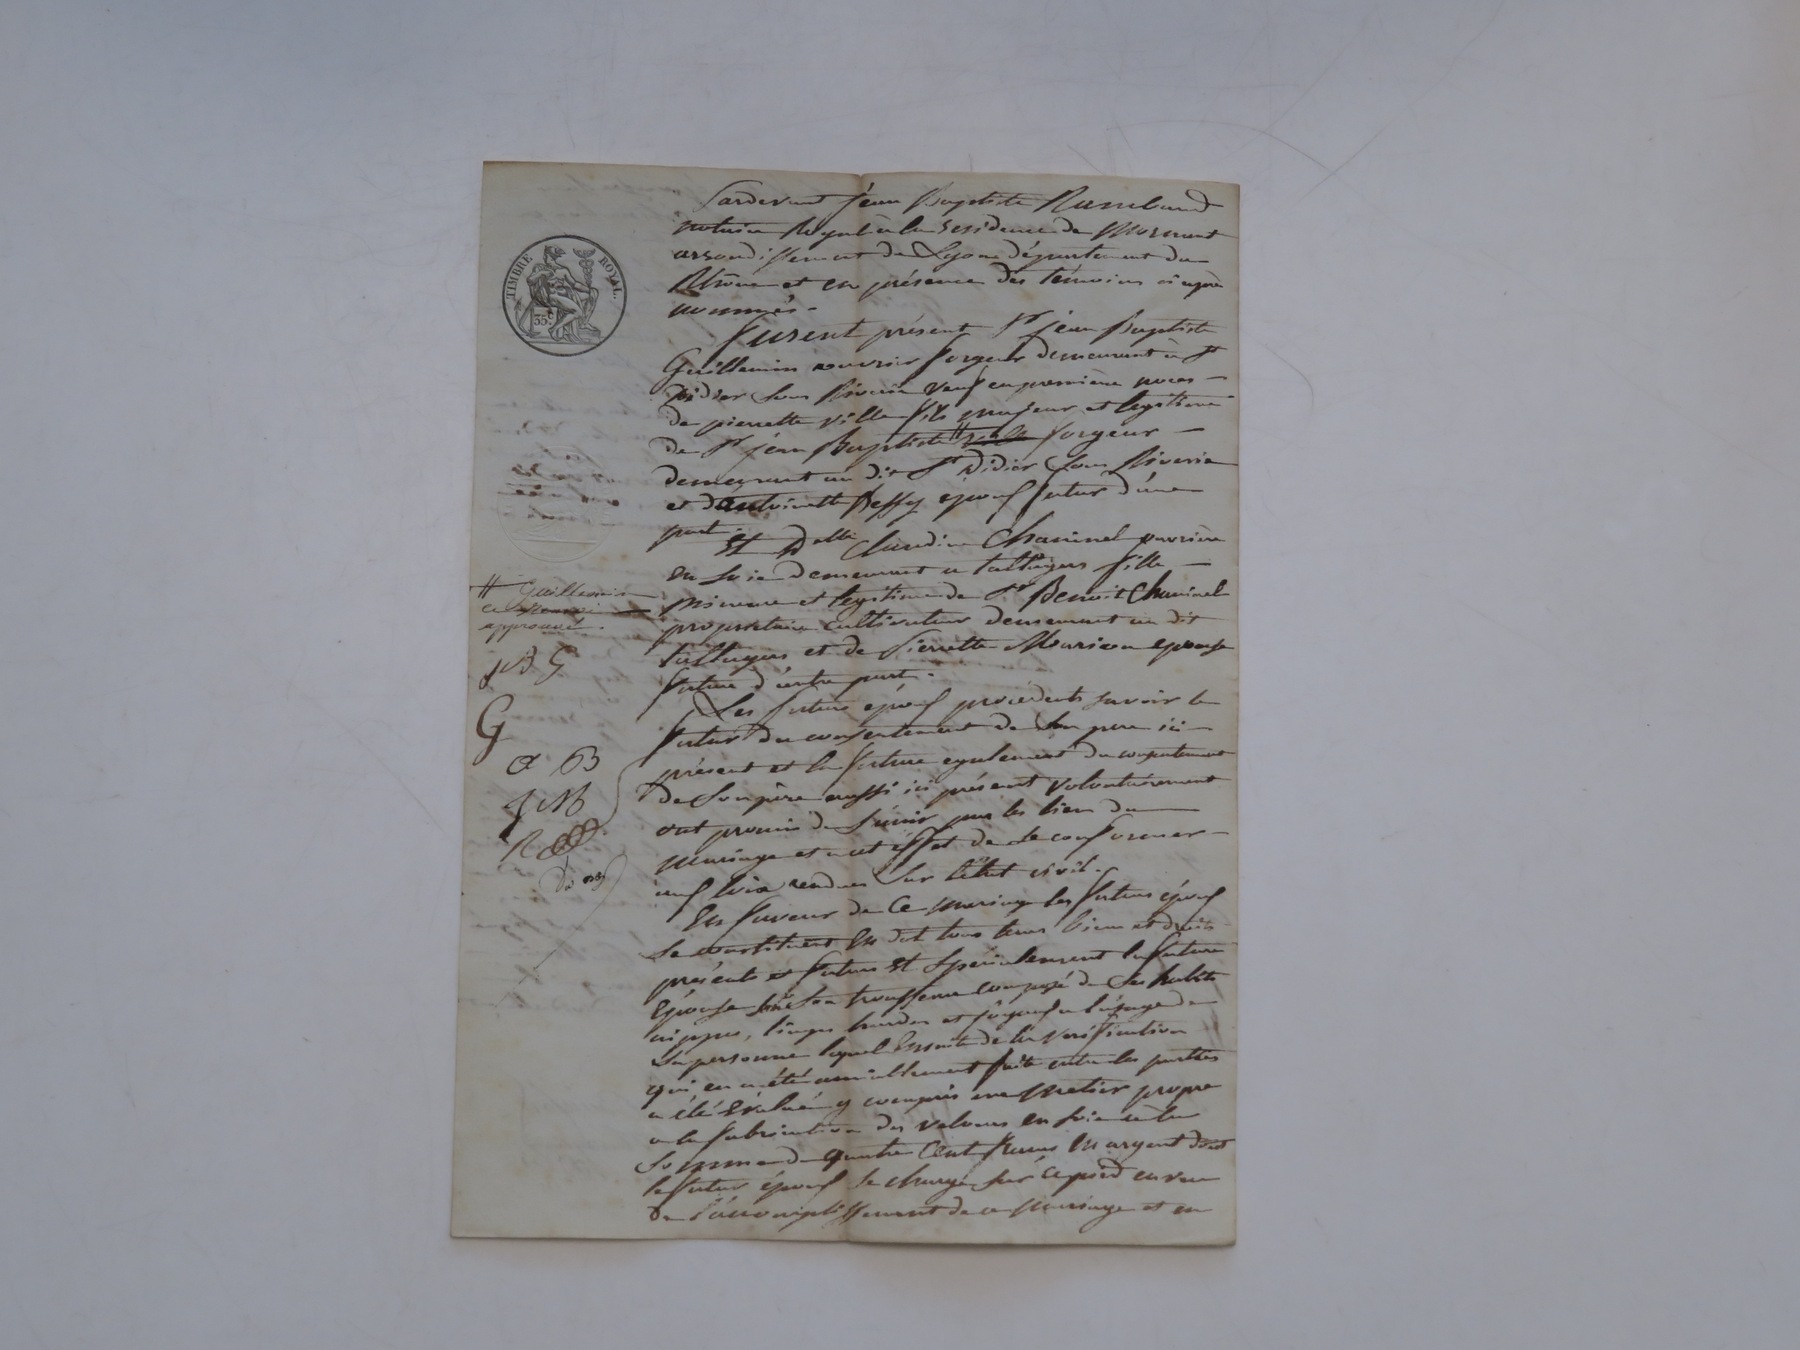 TIMBRE ROYAL.
35 c.
Pardevant jean Baptiste Rambaud
notaire Royal à la residence de Mornant
arrondissement de Lyon département du
Rhône et en présence des témoins ci après
nommés.
furent présent Sr jean Baptiste
Guillemin ouvrier forgeur demeurant à St
Didier sous Riverie veuf en première noces
de pierrette ville fils majeur et legitime
de Sr jean Baptiste # forgeur
demeurant au dit St Didier sous Riverie
et d'antoinette Beffy époux futur d'une
part.
Et Delle Claudine Chaninel ouvrière
en soie demeurant a taluyers fille
mineure et legitime de Sr Benoit Chaninel
proprietaire cultivateur demeurant au dit
taluyers et de Pierrette epouse
future d'autre part.
Les futurs époux procédents savoir le
futur du consentement de son pere ici
présent et la future egalement du consentement
de son père aussi ici présent volontairement
ont promis de s'unir par les lien du
mariage et a cet effet de se conformer
aux loix rendues sur l'état civil.
En faveur de ce mariage les futurs époux
se constituent en dot tous leurs biens et droits
présents et futurs et spécialement la future
épouse son trousseau composé de ses habits
nippes, linges hardes et joyaux a l'usage de
sa personne lequel ensuite de la vérification
qui en a été amiablement faite entre les parties
a été évalué y compris un métier propre
a la fabrication des velours en soie a la
somme de quatre cent francs en argent dont
le futur époux se charge sur ce pied en vue
de l'accomplissement de ce mariage et en
# Guillemin
ce renvoi
approuvé.
JB G
G
a B
J M
R